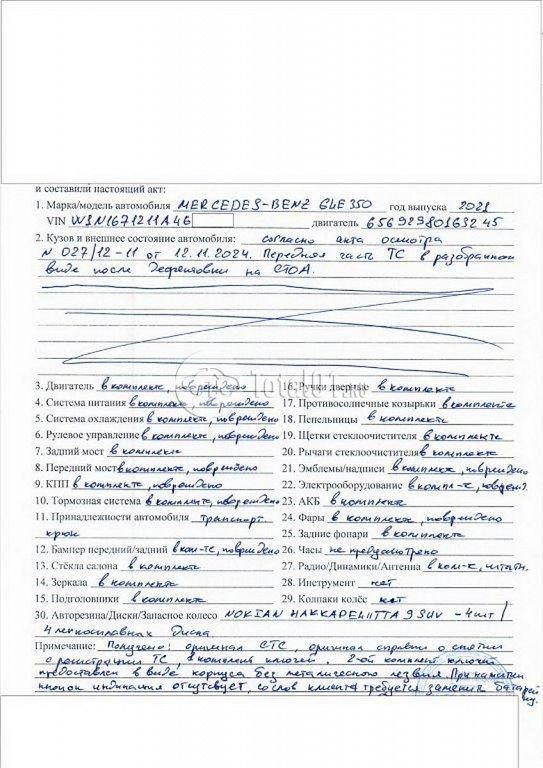 и составили настоящий акт:
1. Марка/модель автомобиля MERCEDES-BENZ GLE 350 год выпуска 2021
VIN W1N1671211A46 двигатель 65692980163245
2. Кузов и внешнее состояние автомобиля: согласно акта осмотра
N 027/12-11 от 12.11.2024. Передняя часть ТС в разобранном
виде после дефектовки на СТОА.
3. Двигатель в комплекте, повреждено 16. Ручки дверные в комплекте
4. Система питания в комплекте, повреждено 17. Противосолнечные козырьки в комплекте
5. Система охлаждения в комплекте, повреждено 18. Пепельницы в комплекте
6. Рулевое управление в комплекте, повреждено 19. Щетки стеклоочистителя в комплекте
7. Задний мост в комплекте 20. Рычаги стеклоочистителя в комплекте
8. Передний мост в комплекте, повреждено 21. Эмблемы/надписи в комплекте, повреждено
9. КПП в комплекте, повреждено 22. Электрооборудование в компл-те, поврежд.
10. Тормозная система в комплекте, повреждено 23. АКБ в комплекте
11. Принадлежности автомобиля транспорт. 24. Фары в комплекте, повреждено
крюк 25. Задние фонари в комплекте
12. Бампер передний/задний в ком-те, повреждено 26. Часы не предусмотрено
13. Стёкла салона в комплекте 27. Радио/Динамики/Антенна в ком-те, штатн.
14. Зеркала в комплекте 28. Инструмент нет
15. Подголовники в комплекте 29. Колпаки колёс нет
30. Авторезина/Диски/Запасное колесо NOKIAN HAKKAPELIITTA 9 SUV - 4 шт /
4 легкосплавных диска
Примечание: Получено: оригинал СТС, оригинал справки о снятии
с регистрации ТС, 2-ой комплект ключей
предоставлен в виде корпуса без металического лезвия. При нажатии
кнопок индикация отсутсвует, со слов клиента требуется замена батарей
ку.